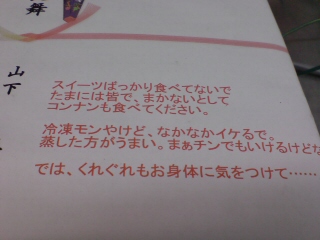 舞
山下
スイーツばっかり食べてないで
たまには皆で、まかないとして
コンナンも食べてください。
冷凍モンやけど、なかなかイケるで。
蒸した方がうまい。まぁチンでもいけるけどな
では、くれぐれもお身体に気をつけて……